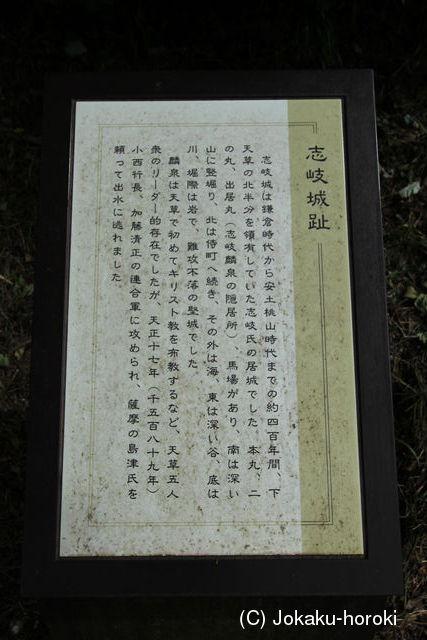 志岐城趾
志岐城は鎌倉時代から安土桃山時代までの約四百年間、下
天草の北半分を領有していた志岐氏の居城でした。本丸、二
の丸、出居丸（志岐麟泉の隠居所）、馬場があり、南は深い
山に竪堀り、北は侍町へ続き、その外は海、東は深い谷、底は
川、堀際は岩で、難攻不落の堅城でした
麟泉は天草で初めてキリスト教を布教するなど、天草五人
衆のリーダー的存在でしたが、天正十七年（千五百八十九年）
小西行長、加藤清正の連合軍に攻められ、薩摩の島津氏を
頼って出水に逃れました。
(C) Jokaku-horoki